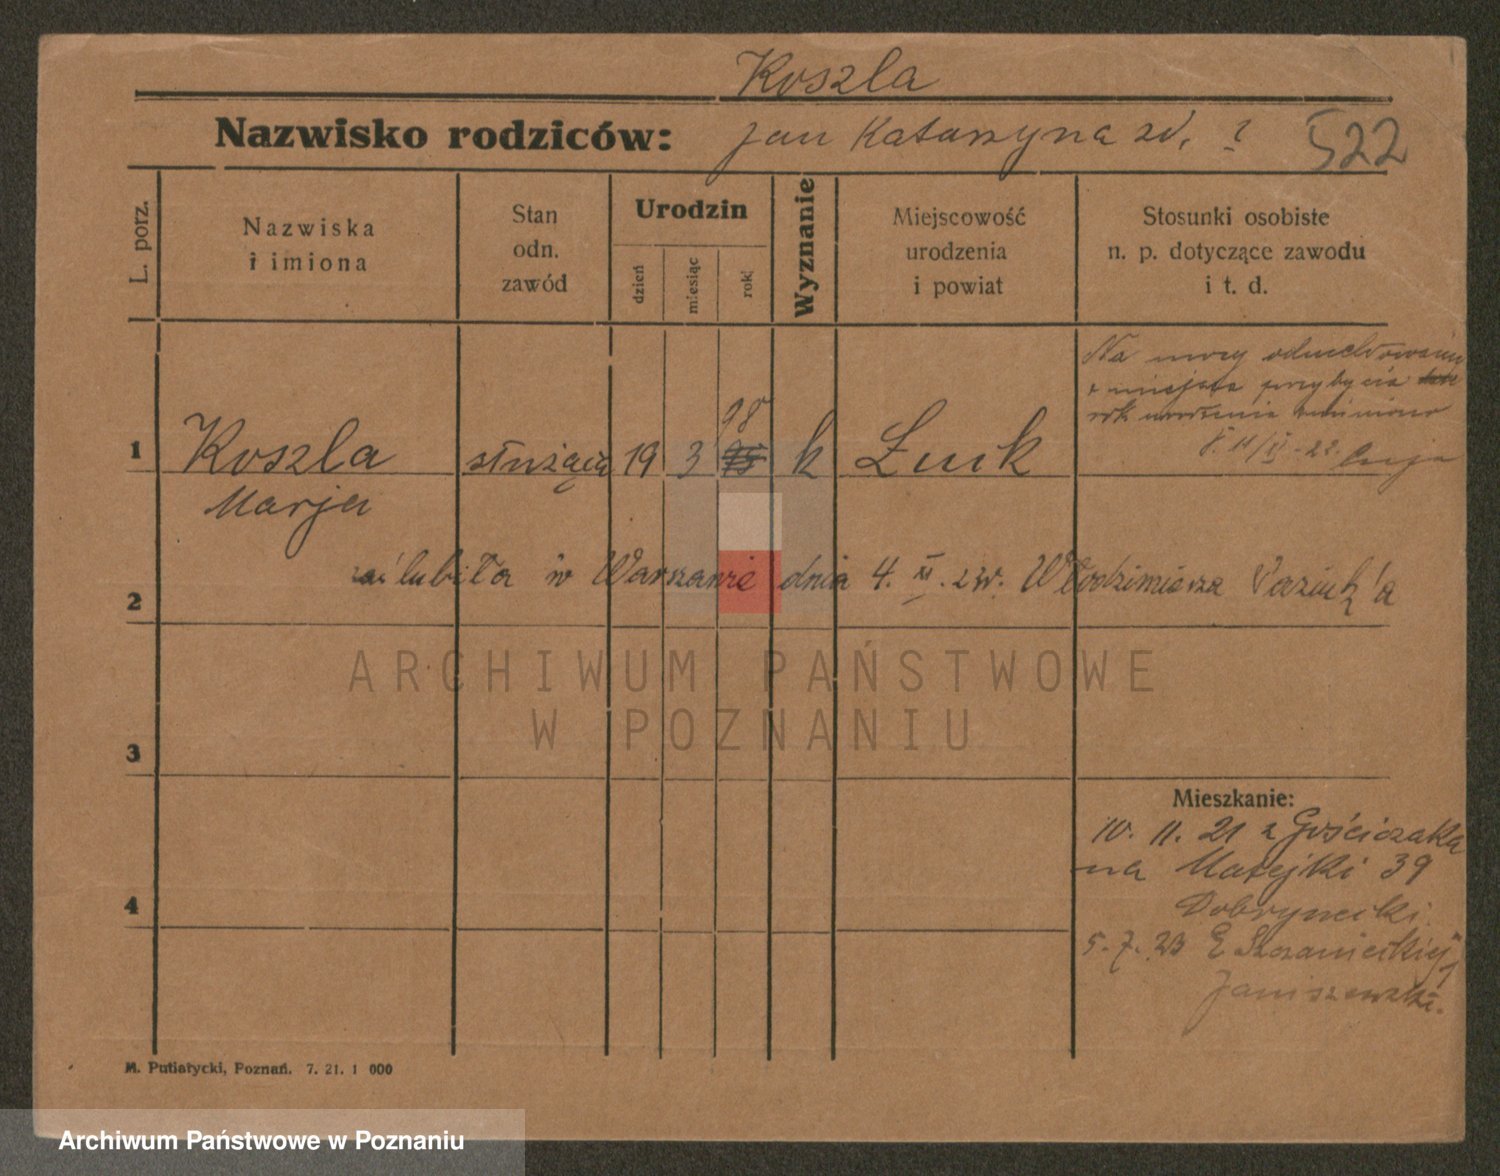 Koszla
Nazwisko rodziców: Jan Katarzyna zd. ? 522
L. porz.
Nazwiska
i imiona
Stan
odn.
zawód
Urodzin
dzień
miesiąc
rok
Wyznanie
Miejscowość
urodzenia
i powiat
Stosunki osobiste
n. p. dotyczące zawodu
i t. d.
Na mocy odmeldowania
z miejsca przybycia
rok urodzenia zmieniono
98
1 Koszla służąca 19 3 k Łuck
Marja
zaślubiła w Warszawie dnia 4. XI. 23r. Włodzimierza
2
3
ARCHIWUM PAŃSTWOWE
W POZNANIU
Mieszkanie:
10. 11. 21 z Gościczaka
na Matejki 39
4
5. 7. 23 E Szczanieckiej
Janiszewski.
M. Putiatycki, Poznań. 7. 21. 1 000
Archiwum Państwowe w Poznaniu